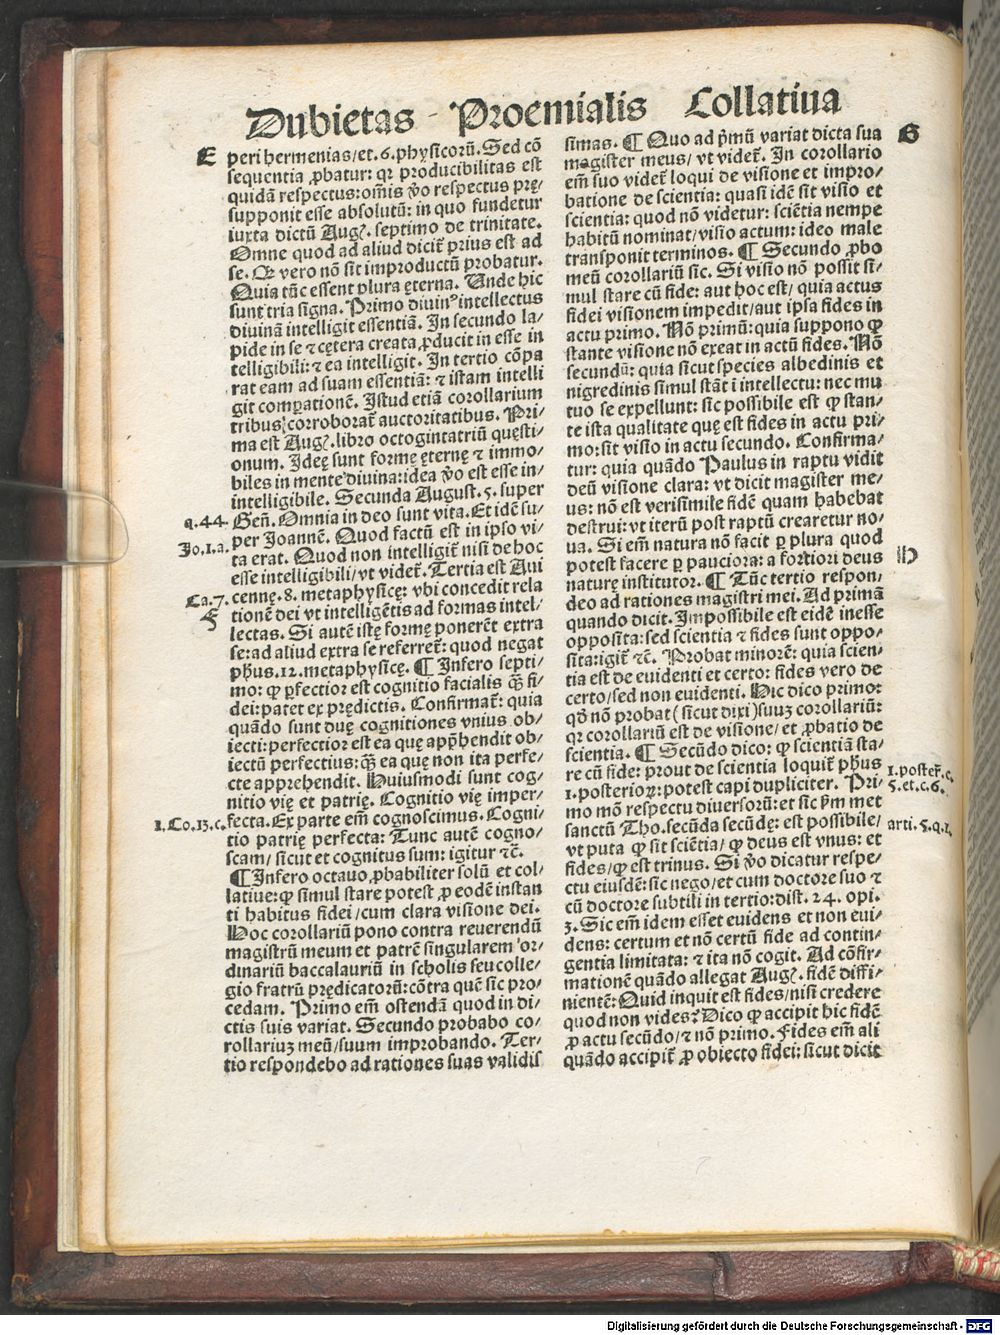 Dubietas Proemialis Collatiua
E
peri hermenias/et.6.phẏsicorũ.Sed cõ
sequentia ꝓbatur: qꝛ producibilitas est
quidã respectus:om̃is v̊o respectus pꝛę/
supponit esse absolutũ: in quo fundetur
iuxta dictũ Augꝭ. septimo de trinitate.
Omne quod ad aliud dicit̃ prius est ad
se. Qꝫ vero nõ sit improductũ probatur.
Quia tũc essent plura ęterna. Unde hic
sunt tria signa. Primo diuinꝰ intellectus
diuinã intelligit essentiã. In secundo la/
pide in se ⁊ cętera creata ꝓducit in esse in
telligibili: ⁊ ea intelligit. In tertio cõpa
rat eam ad suam essentiã: ⁊ istam intelli
git compationẽ. Istud etiã corollarium
tribus corroborat̃ auctoritatibus. Pri/
ma est Augꝭ.libro octogintatriũ quęsti/
onum. Ideę sunt formę ęternę ⁊ immo/
biles in mente diuina:idea v̊o est esse in/
intelligibile. Secunda August. 5. super
q.44. Geñ. Omnia in deo sunt vita.Et idẽ su/
per Joannẽ. Quod factũ est in ipso vi/
Jo.1.a. ta erat. Quod non intelligit̃ nisi de hoc
esse intelligibili/vt videt̃. Tertia est Aui
Ca.7. cennę.8. metaphysicę: vbi concedit rela
F tionẽ dei vt intelligẽtis ad formas intel/
lectas. Si autẽ istę formę ponerẽt extra
se:ad aliud extra se referret̃: quod negat
ph̃us.12.metaphysicę. ¶ Infero septi/
mo: ꝙ ꝑfectior est cognitio facialis q̃ꝫ fi/
dei:patet ex pꝛędictis. Confirmat̃: quia
quãdo sunt duę cognitiones vnius ob/
iecti:perfectior est ea quę app̃hendit ob/
iectũ perfectius:q̃ꝫ ea quę non ita perfe/
cte apprehendit. Huiusmodi sunt cog/
nitio vię et patrię. Cognitio vię imper/
1.Co.13.c. fecta. Ex parte em̃ cognoscimus. Cogni/
tio patrię perfecta: Tunc autẽ cogno/
scam/ sicut et cognitus sum: igitur ⁊c̃.
¶Infero octauo ꝓbabiliter solũ et col/
latiue:ꝙ simul stare potest ꝓ eodẽ instan
ti habitus fidei/cum clara visione dei.
Hoc corollariũ pono contra reuerendũ
magistrũ meum et patrẽ singularem or/
dinariũ baccalauriũ in scholis seu colle/
gio fratrũ prędicatorũ:cõtra quẽ sic pro/
cedam. Primo em̃ ostendã quod in di/
ctis suis variat. Secundo probabo co/
rollariuꝫ meũ/suum improbando. Ter/
tio respondebo ad rationes suas validis
simas. ¶ Quo ad p̃mũ variat dicta sua G
magister meus/ vt videt̃. In corollario
em̃ suo videt̃ loqui de visione et impro/
batione de scientia: quasi idẽ sit visio et
scientia: quod nõ videtur: sciẽtia nempe
habitũ nominat/visio actum: ideo male
transponit terminos. ¶ Secundo ꝓbo
meũ corollariũ sic. Si visio nõ possit si/
mul stare cũ fide: aut hoc est/ quia actus
fidei visionem impedit/aut ipsa fides in
actu primo. Nõ primũ:quia suppono ꝙ
stante visione nõ exeat in actũ fides. Nõ
secundũ: quia sicut species albedinis et
nigredinis simul stãt ĩ intellectu: nec mu
tuo se expellunt: sic possibile est ꝙ stan/
te ista qualitate quę est fides in actu pri/
mo:sit visio in actu secundo. Confirma/
tur: quia quãdo Paulus in raptu vidit
deũ visione clara: vt dicit magister me/
us: nõ est verisimile fidẽ quam habebat
destrui: vt iterũ post raptũ crearetur no/
ua. Si em̃ natura nõ facit ꝑ plura quod
potest facere ꝑ pauciora: a fortiori deus H
naturę institutor. ¶ Tũc tertio respon/
deo ad rationes magistri mei. Ad primã
quando dicit. Impossibile est eidẽ inesse
opposita: sed scientia ⁊ fides sunt oppo/
sita:igit̃ ⁊c̃. Probat minorẽ: quia scien/
tia est de euidenti et certo: fides vero de
certo/sed non euidenti. Hic dico primo:
qd̃ nõ probat (sicut dixi) suuꝫ corollariũ:
qꝛ corollariũ est de visione/ et ꝓbatio de
scientia. ¶ Secũdo dico: ꝙ scientiã sta/
re cũ fide: prout de scientia loquit̃ ph̃us 1.poster̃.c.
1.posterioꝝ:potest capi dupliciter. Pri/ 5.et.c.6.
mo mõ respectu diuersorũ:et sic ẜm met
sanctũ Tho.secũda secũdę: est possibile/ arti.5.q.1.
vt puta ꝙ sit sciẽtia/ ꝙ deus est vnus: et
fides/ꝙ est trinus. Si v̊o dicatur respe/
ctu eiusdẽ: sic nego/et cum doctore suo ⁊
cũ doctore subtili in tertio:dist. 24. opi.
3. Sic em̃ idem esset euidens et non eui/
dens: certum et nõ certũ fide ad contin/
gentia limitata: ⁊ ita nõ cogit. Ad cõfir/
mationẽ quãdo allegat Augꝭ. fidẽ diffi/
nientẽ: Quid inquit est fides/nisi credere
quod non vides? Dico ꝙ accipit hic fidẽ
ꝓ actu secũdo/⁊ nõ primo. Fides em̃ ali
quãdo accipit̃ ꝓ obiecto fidei: sicut dicit
Digitalisierung gefördert durch die Deutsche Forschungsgemeinschaft - DFG